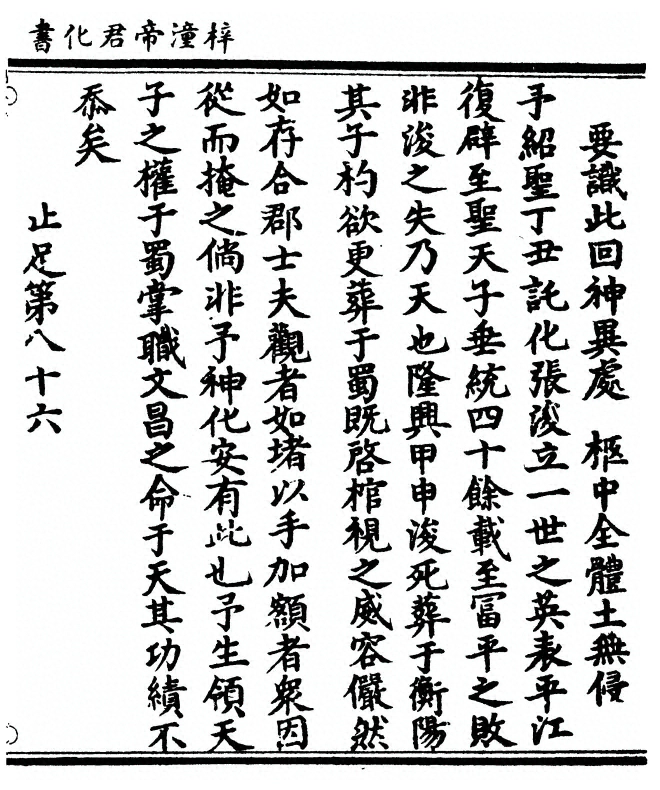 梓潼帝君化書
要識此回神異處　柩中全體土無侵
予紹聖丁丑託化張浚立一世之英表平江
復辟至聖天子垂統四十餘載至冨平之敗
非浚之失乃天也隆興甲申浚死葬于衡陽
其子杓欲更葬于蜀既啓棺視之威容儼然
如存合郡士夫觀者如堵以手加額者衆因
從而掩之倘非予神化安有此也予生領天
子之權于蜀掌職文昌之命于天其功績不
忝矣
止足第八十六